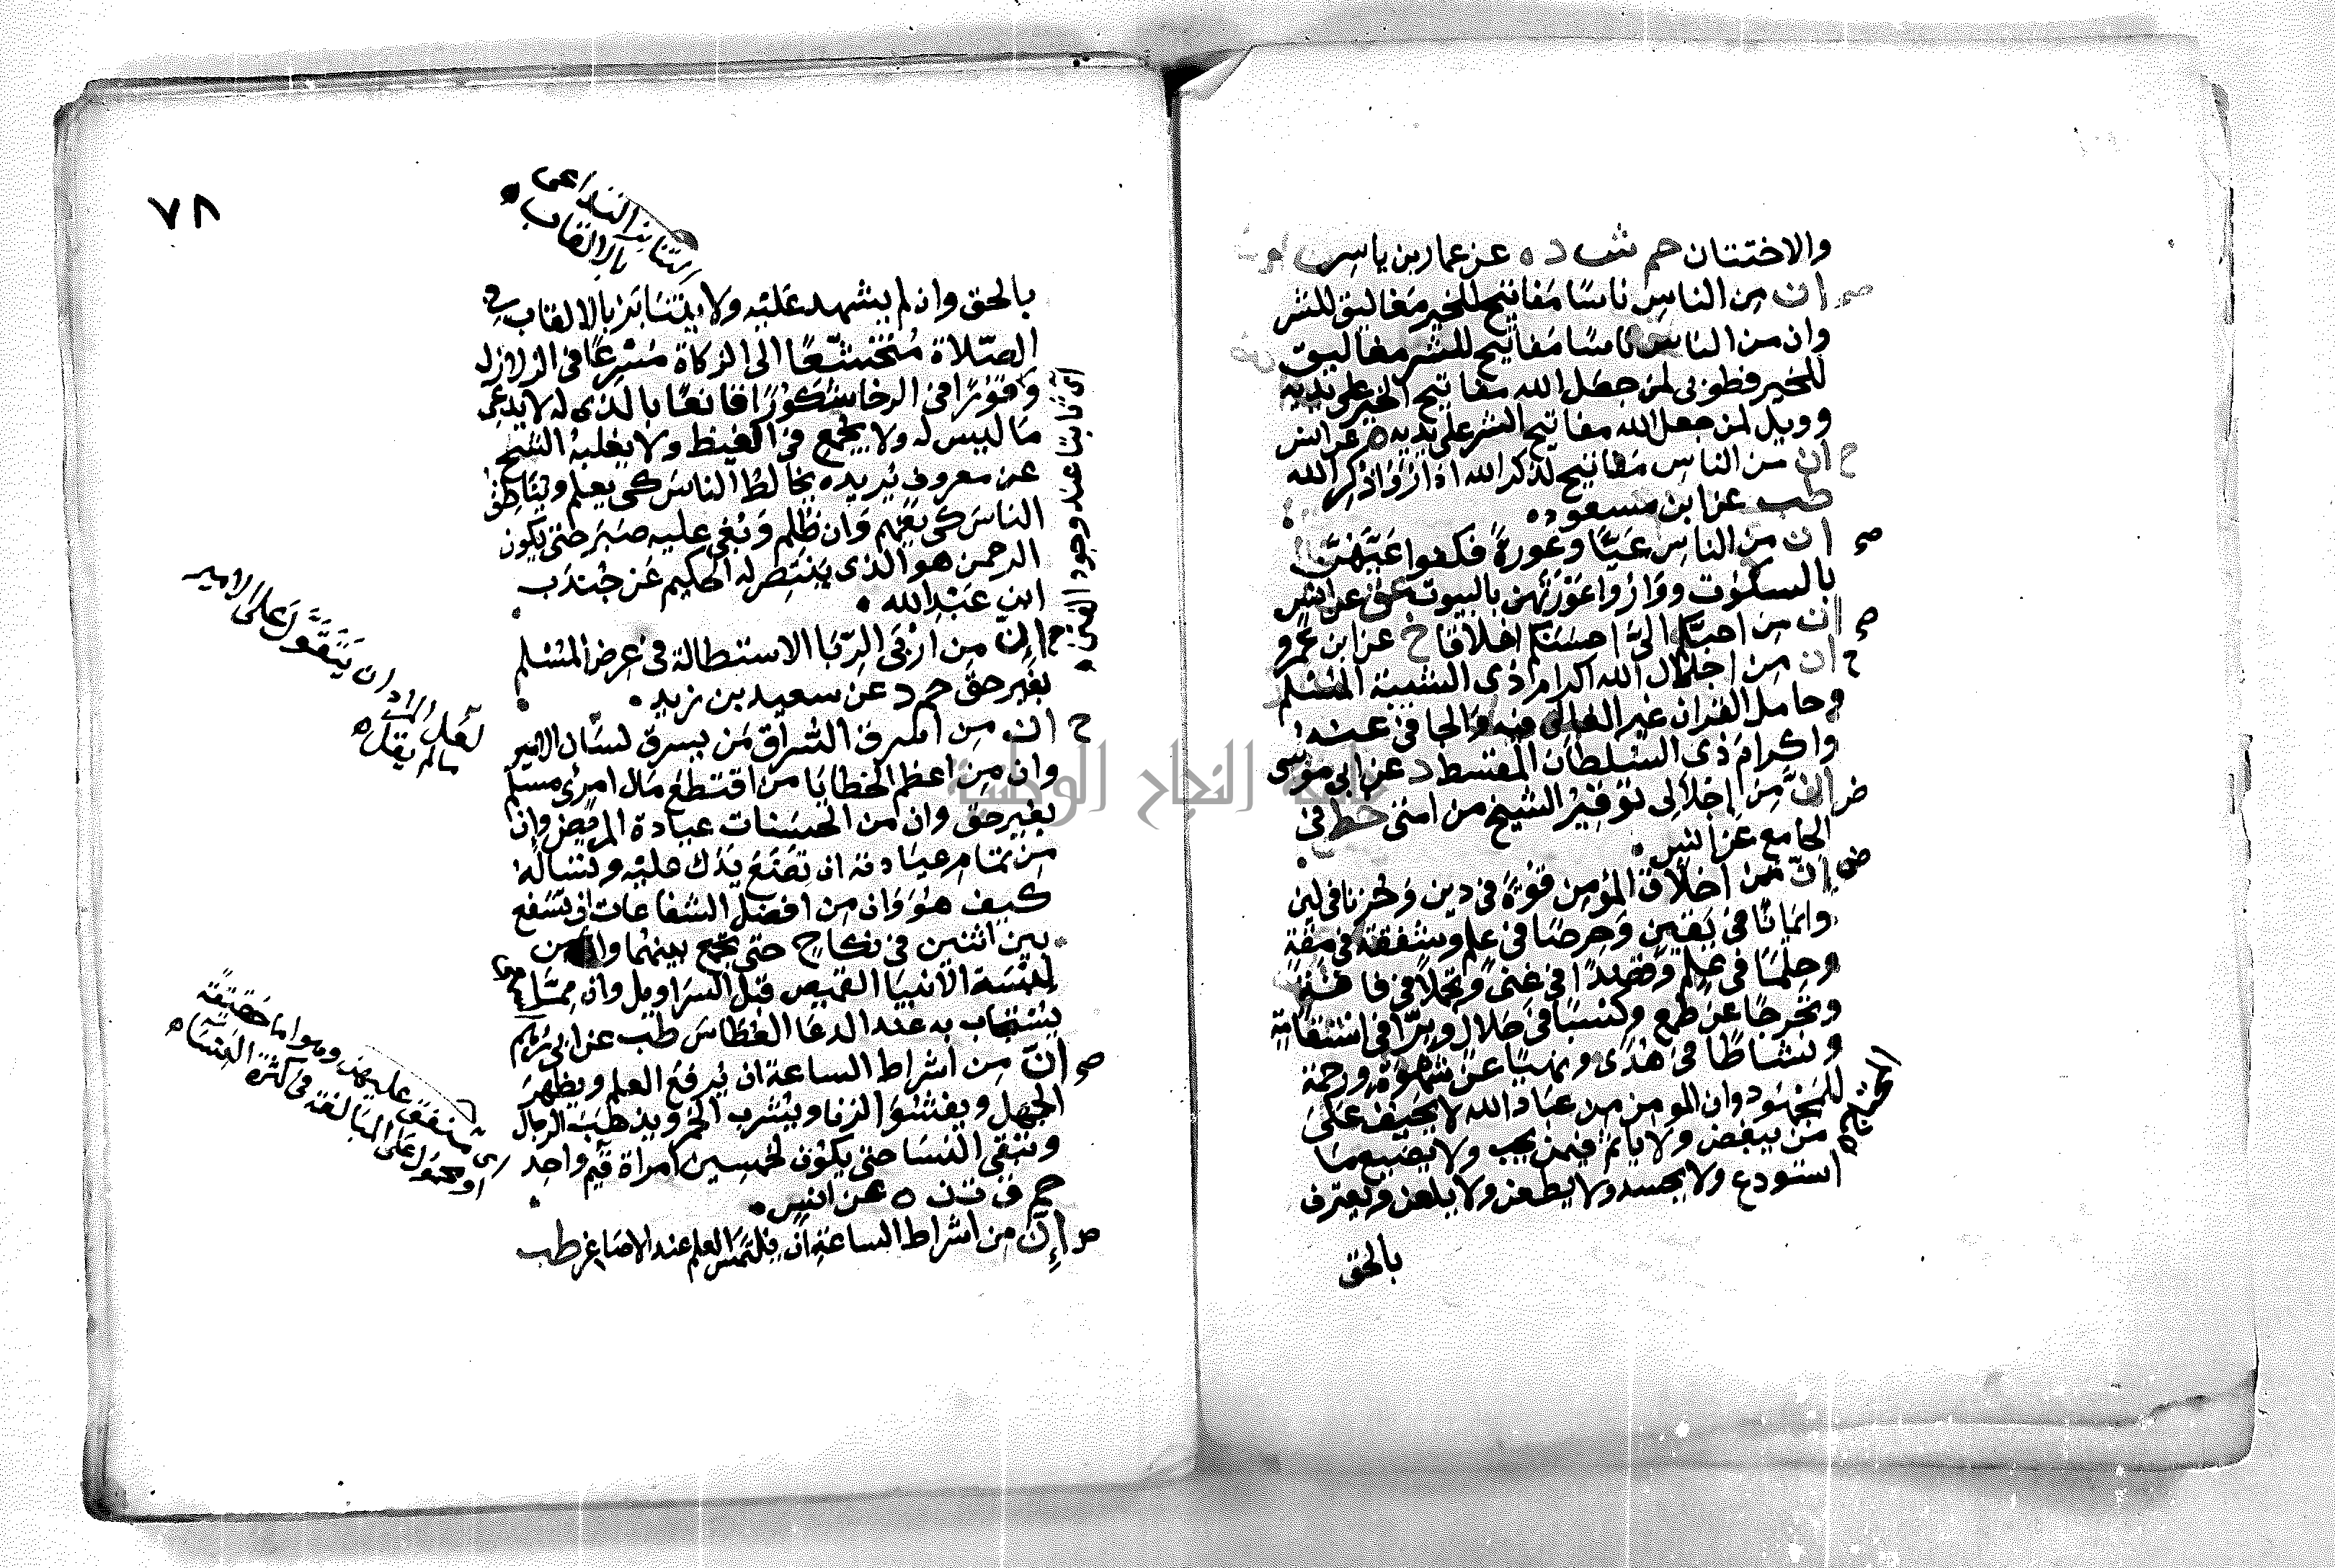 والاختتان حم ش د ه عن عمار بن ياسر
صح ان من الناس ناسًا مفاتيح للخير مغاليق للشر
وان من الناس ناسًا مفاتيح للشر مغاليق
للخير فطوبى لمن جعل الله مفاتيح الخير على يديه
وويل لمن جعل الله مفاتيح الشر على يديه ه عن انس
ح ان من الناس مفاتيح لذكر الله اذا رُؤا ذُكِر الله
طب عن ابن مسعود ه
صح ان من النساء عيًّا وعورةً فكفوا عيّهنّ
بالسكوت وواروا عوراتهن بالبيوت عق عن انس
صح ان من احبّكم اليَّ احسنكم اخلاقا خ عن ابن عمرو
ح ان من اجلال الله اكرام ذى الشيبة المسلم
وحامل القران غير الغالى فيه والجافى عنه
واكرام ذى السلطان المقسط د عن ابى موسى
ض انّ من إجلالى توقير الشيخ من امتى خط فى
الجامع عن انس
ض إنّ من اخلاق المؤمن قوةً فى دين وحزمًا فى لين
وايمانًا فى يقين وحرصًا فى علم وشفقة فى مقة
وحلمًا فى علم وقصدًا فى غنى وتجملاً فى فاقة
وتحرجًا عن طمع وكسبًا فى حلال وبرّا فى استقامة
ونشاطًا فى هدى ونهيًا عن شهوة ورحمة
للمجهود وان المومن من عباد الله لا يحيف على
المحتاج ه
من يبغض ولا ياثم فيمن يحب ولا يضيع ما
استودع ولا يحسد ولا يطعن ولا يلعن ويعترف
بالحق
٧٨
اى التنابز التداعى
بالالقاب ه
بالحق وان لم يشهد عليه ولا يتنابز بالالقاب فى
الصلاة متخشعًا الى الزكاة مسرعًا فى الزلازل
وقورًا فى الرخا شكورًا قانعًا بالذى له لا يدعى
ما ليس له ولا يجمع فى الغيظ ولا يغلبه الشح
عن معروف يريده يخالط الناس كى يعلم ويناطق
الناس كى يفهم وان ظُلم وبُغى عليه صبر حتى يكون
الرحمن هو الذى ينتصر له الحكيم عن جندب
ابن عبد الله
اى ثابتا عند وجود الفتن ه
ح إنّ من اربى الرّبا الاستطالة فى عرض المسلم
بغير حق حم د عن سعيد بن زيد
ح ان من اسرق السُّراق من يسرق لسان الامير
وان من اعظم الخطايا من اقتطع مال امرئ مسلم
بغير حق وان من الحسنات عيادة المريض وان
من تمام عيادته ان تضع يدك عليه وتساله
كيف هو وان من افضل الشفاعات ان تشفع
بين اثنين فى نكاح حتى تجمع بينهما وان من
لبسة الانبيا القميص قبل السراويل وان مما
يستجاب به عند الدعا العطاس طب عن ابى رهم
لعل المراد ان يتقوّل على الامير
ما لم يقل ه
صح انّ من اشراط الساعة ان يُرفع العلم ويظهر
الجهل ويفشو الزنا ويشرب الخمر ويذهب الرجال
وتبقى النسا حتى يكون لخمسين امراة قيّم واحد
حم ق ت ن ه عن انس
اى منفق عليهن وهو اما حقيقة
او محمول على المبالغة فى كثرة النساء ه
ض إنّ من اشراط الساعة ان يلتمس العلم عند الاصاغر طب